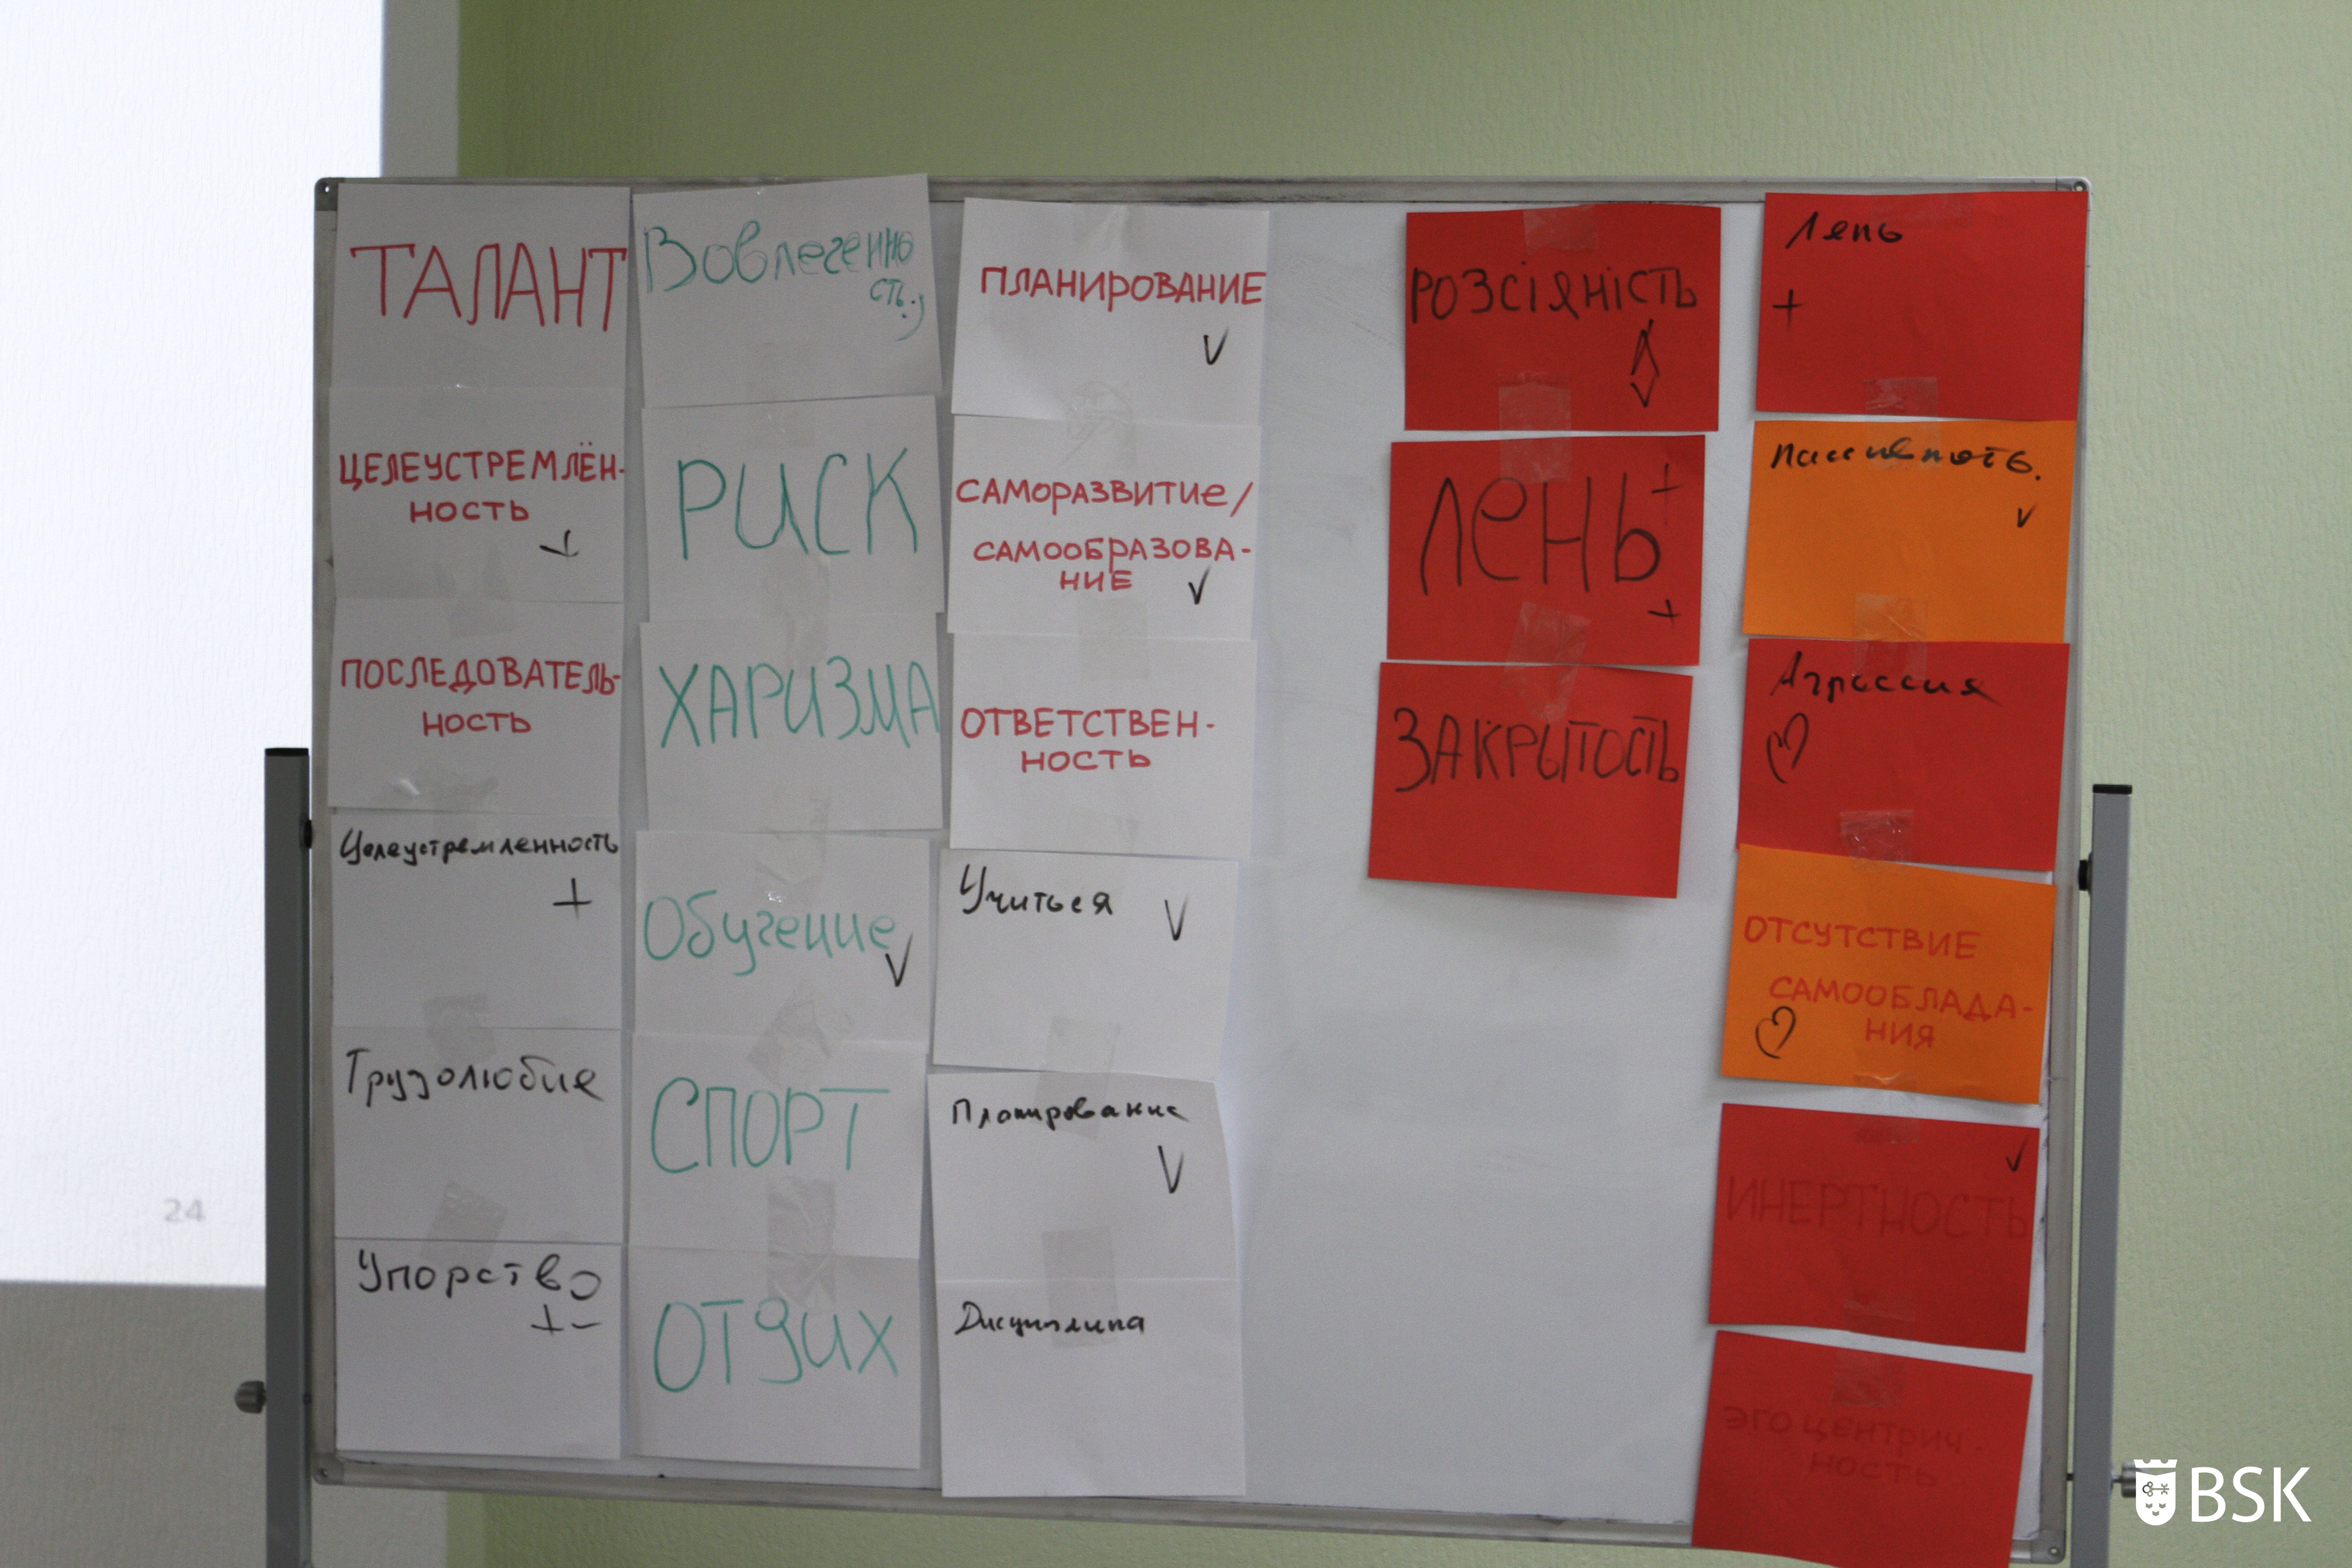 ТАЛАНТ
ЦЕЛЕУСТРЕМЛЁН-
НОСТЬ
+
ПОСЛЕДОВАТЕЛЬ-
НОСТЬ
Целеустремленность
+
Трудолюбие
Упорство
+ –
Вовлеченно
сть :)
РИСК
ХАРИЗМА
Обучение
V
СПОРТ
ОТДИХ
ПЛАНИРОВАНИЕ
V
САМОРАЗВИТИЕ/
САМООБРАЗОВА-
НИЕ
V
ОТВЕТСТВЕН-
НОСТЬ
Учиться V
Планирование
V
Дисциплина
РОЗСІЯНІСТЬ
ЛЕНЬ +
+
ЗАКРЫТОСТЬ
Лень
+
Пассивность.
V
Агрессия
ОТСУТСТВИЕ
САМООБЛАДА-
НИЯ
V
ИНЕРТНОСТЬ
ЭГОЦЕНТРИЧ-
НОСТЬ
24
BSK